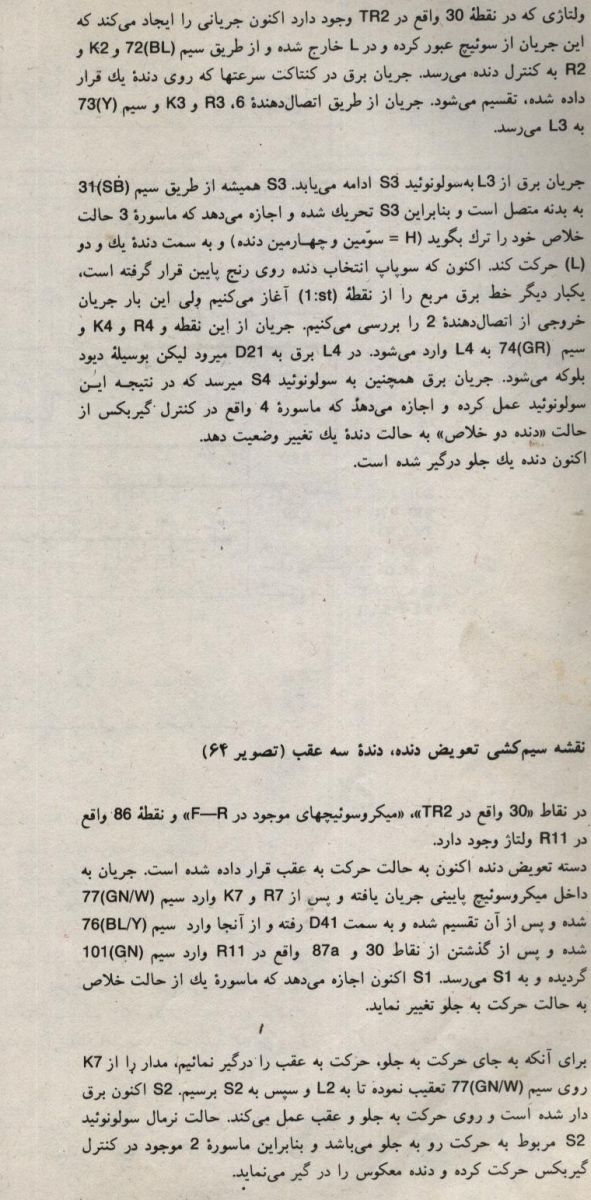 ولتاژی که در نقطهٔ 30 واقع در TR2 وجود دارد اکنون جریانی را ایجاد می‌کند که
این جریان از سوئیچ عبور کرده و در L خارج شده و از طریق سیم 72(BL) و K2 و
R2 به کنترل دنده می‌رسد. جریان برق در کنتاکت سرعتها که روی دندهٔ یک قرار
داده شده، تقسیم می‌شود. جریان از طریق اتصال‌دهندهٔ 6، R3 و K3 و سیم 73(Y)
به L3 می‌رسد.
جریان برق از L3 به‌سولونوئید S3 ادامه می‌یابد. S3 همیشه از طریق سیم 31(SB)
به بدنه متصل است و بنابراین S3 تحریک شده و اجازه می‌دهد که ماسورهٔ 3 حالت
خلاص خود را ترک بگوید (H = سوّمین و چهارمین دنده) و به سمت دندهٔ یک و دو
(L) حرکت کند. اکنون که سوپاپ انتخاب دنده روی رنج پایین قرار گرفته است،
یکبار دیگر خط برق مربع را از نقطهٔ (1:st) آغاز می‌کنیم ولی این بار جریان
خروجی از اتصال‌دهندهٔ 2 را بررسی می‌کنیم. جریان از این نقطه و R4 و K4 و
سیم 74(GR) به L4 وارد می‌شود. در L4 برق به D21 میرود لیکن بوسیلهٔ دیود
بلوکه می‌شود. جریان برق همچنین به سولونوئید S4 میرسد که در نتیجه این
سولونوئید عمل کرده و اجازه می‌دهد که ماسورهٔ 4 واقع در کنترل گیربکس از
حالت «دنده دو خلاص» به حالت دندهٔ یک تغییر وضعیت دهد.
اکنون دنده یک جلو درگیر شده است.
نقشه سیم‌کشی تعویض دنده، دندهٔ سه عقب (تصویر ۶۴)
در نقاط «30 واقع در TR2»، «میکروسوئیچهای موجود در F—R» و نقطهٔ 86 واقع
در R11 ولتاژ وجود دارد.
دسته تعویض دنده اکنون به حالت حرکت به عقب قرار داده شده است. جریان به
داخل میکروسوئیچ پایینی جریان یافته و پس از R7 و K7 وارد سیم 77(GN/W)
شده و پس از آن تقسیم شده و به سمت D41 رفته و از آنجا وارد سیم 76(BL/Y)
شده و پس از گذشتن از نقاط 30 و 87a واقع در R11 وارد سیم 101(GN)
گردیده و به S1 می‌رسد. S1 اکنون اجازه می‌دهد که ماسورهٔ یک از حالت خلاص
به حالت حرکت به جلو تغییر نماید.
برای آنکه به جای حرکت به جلو، حرکت به عقب را درگیر نمائیم، مدار را از K7
روی سیم 77(GN/W) تعقیب نموده تا به L2 و سپس به S2 برسیم. S2 اکنون برق
دار شده است و روی حرکت به جلو و عقب عمل می‌کند. حالت نرمال سولونوئید
S2 مربوط به حرکت رو به جلو می‌باشد و بنابراین ماسورهٔ 2 موجود در کنترل
گیربکس حرکت کرده و دنده معکوس را در گیر می‌نماید.